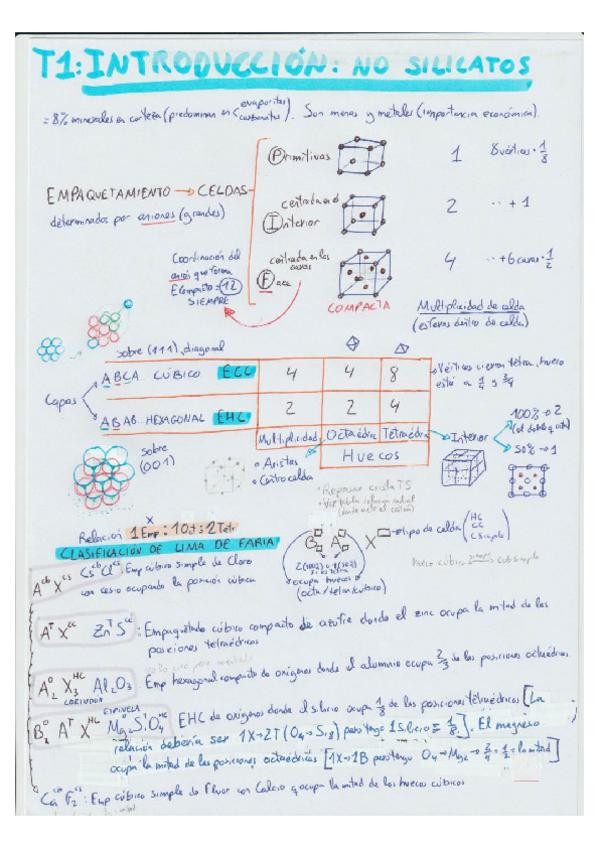 T1: INTRODUCCIÓN: NO SILICATOS
≈ 8% minerales en corteza (predominan en evaporitas carbonatos). Son menas y metales (importancia económica).
Primitivas 1 8 vértices · 1/8
EMPAQUETAMIENTO → CELDAS
determinados por aniones (grandes)
centrada en el Interior 2 ·· + 1
Coordinación del anión que forma E.compacto = 12 SIEMPRE
centrada en las caras Face 4 ·· + 6 caras · 1/2
COMPACTA
Multiplicidad de celda
(esferas dentro de celda)
sobre (111), diagonal
Capas
ABCA CÚBICO ECC 4 4 8
Vértices cierran tetra, hueco está a 1/4 y 3/4
ABAB HEXAGONAL EHC 2 2 4
Multiplicidad Octaédric Tetraédric
Huecos
sobre (001)
Aristas
Centro celda
Interior
100% → 2
50% → 1
Relación 1 Emp : 1 Oct : 2 Tetr
x
CLASIFICACIÓN DE LIMA DE FARIA
B A X → tipo de celda (HC CC CSimple
ocupa huecos
(octa/tetra/cúbico)
hueco cúbico cub simple
A^cb X^cs Cs^cb Cl^cs : Emp cúbico simple de Cloro
con cesio ocupando la posición cúbica
A^T X^cc Zn^T S^cc : Empaquetado cúbico compacto de azufre donde el zinc ocupa la mitad de las
posiciones tetraédricas
A₂^o X₃^HC Al₂O₃ Emp hexagonal compacto de oxígenos donde el aluminio ocupa 2/3 de las posiciones octaédricas.
CORINDÓN
ESPINELA
B₂^o A^T X₄^HC Mg₂SiO₄^HC EHC de oxígenos donde el silicio ocupa 1/8 de las posiciones tetraédricas [La
relación debería ser 1X→2T (O₄→Si₈) pero tengo 1 silicio = 1/8]. El magnesio
ocupa la mitad de las posiciones octaédricas [1X→1B pero tengo O₄→Mg₂ → 2/4 = 1/2 = la mitad]
Ca^cb F₂^cs : Emp cúbico simple de Fluor con Calcio q ocupa la mitad de los huecos cúbicos